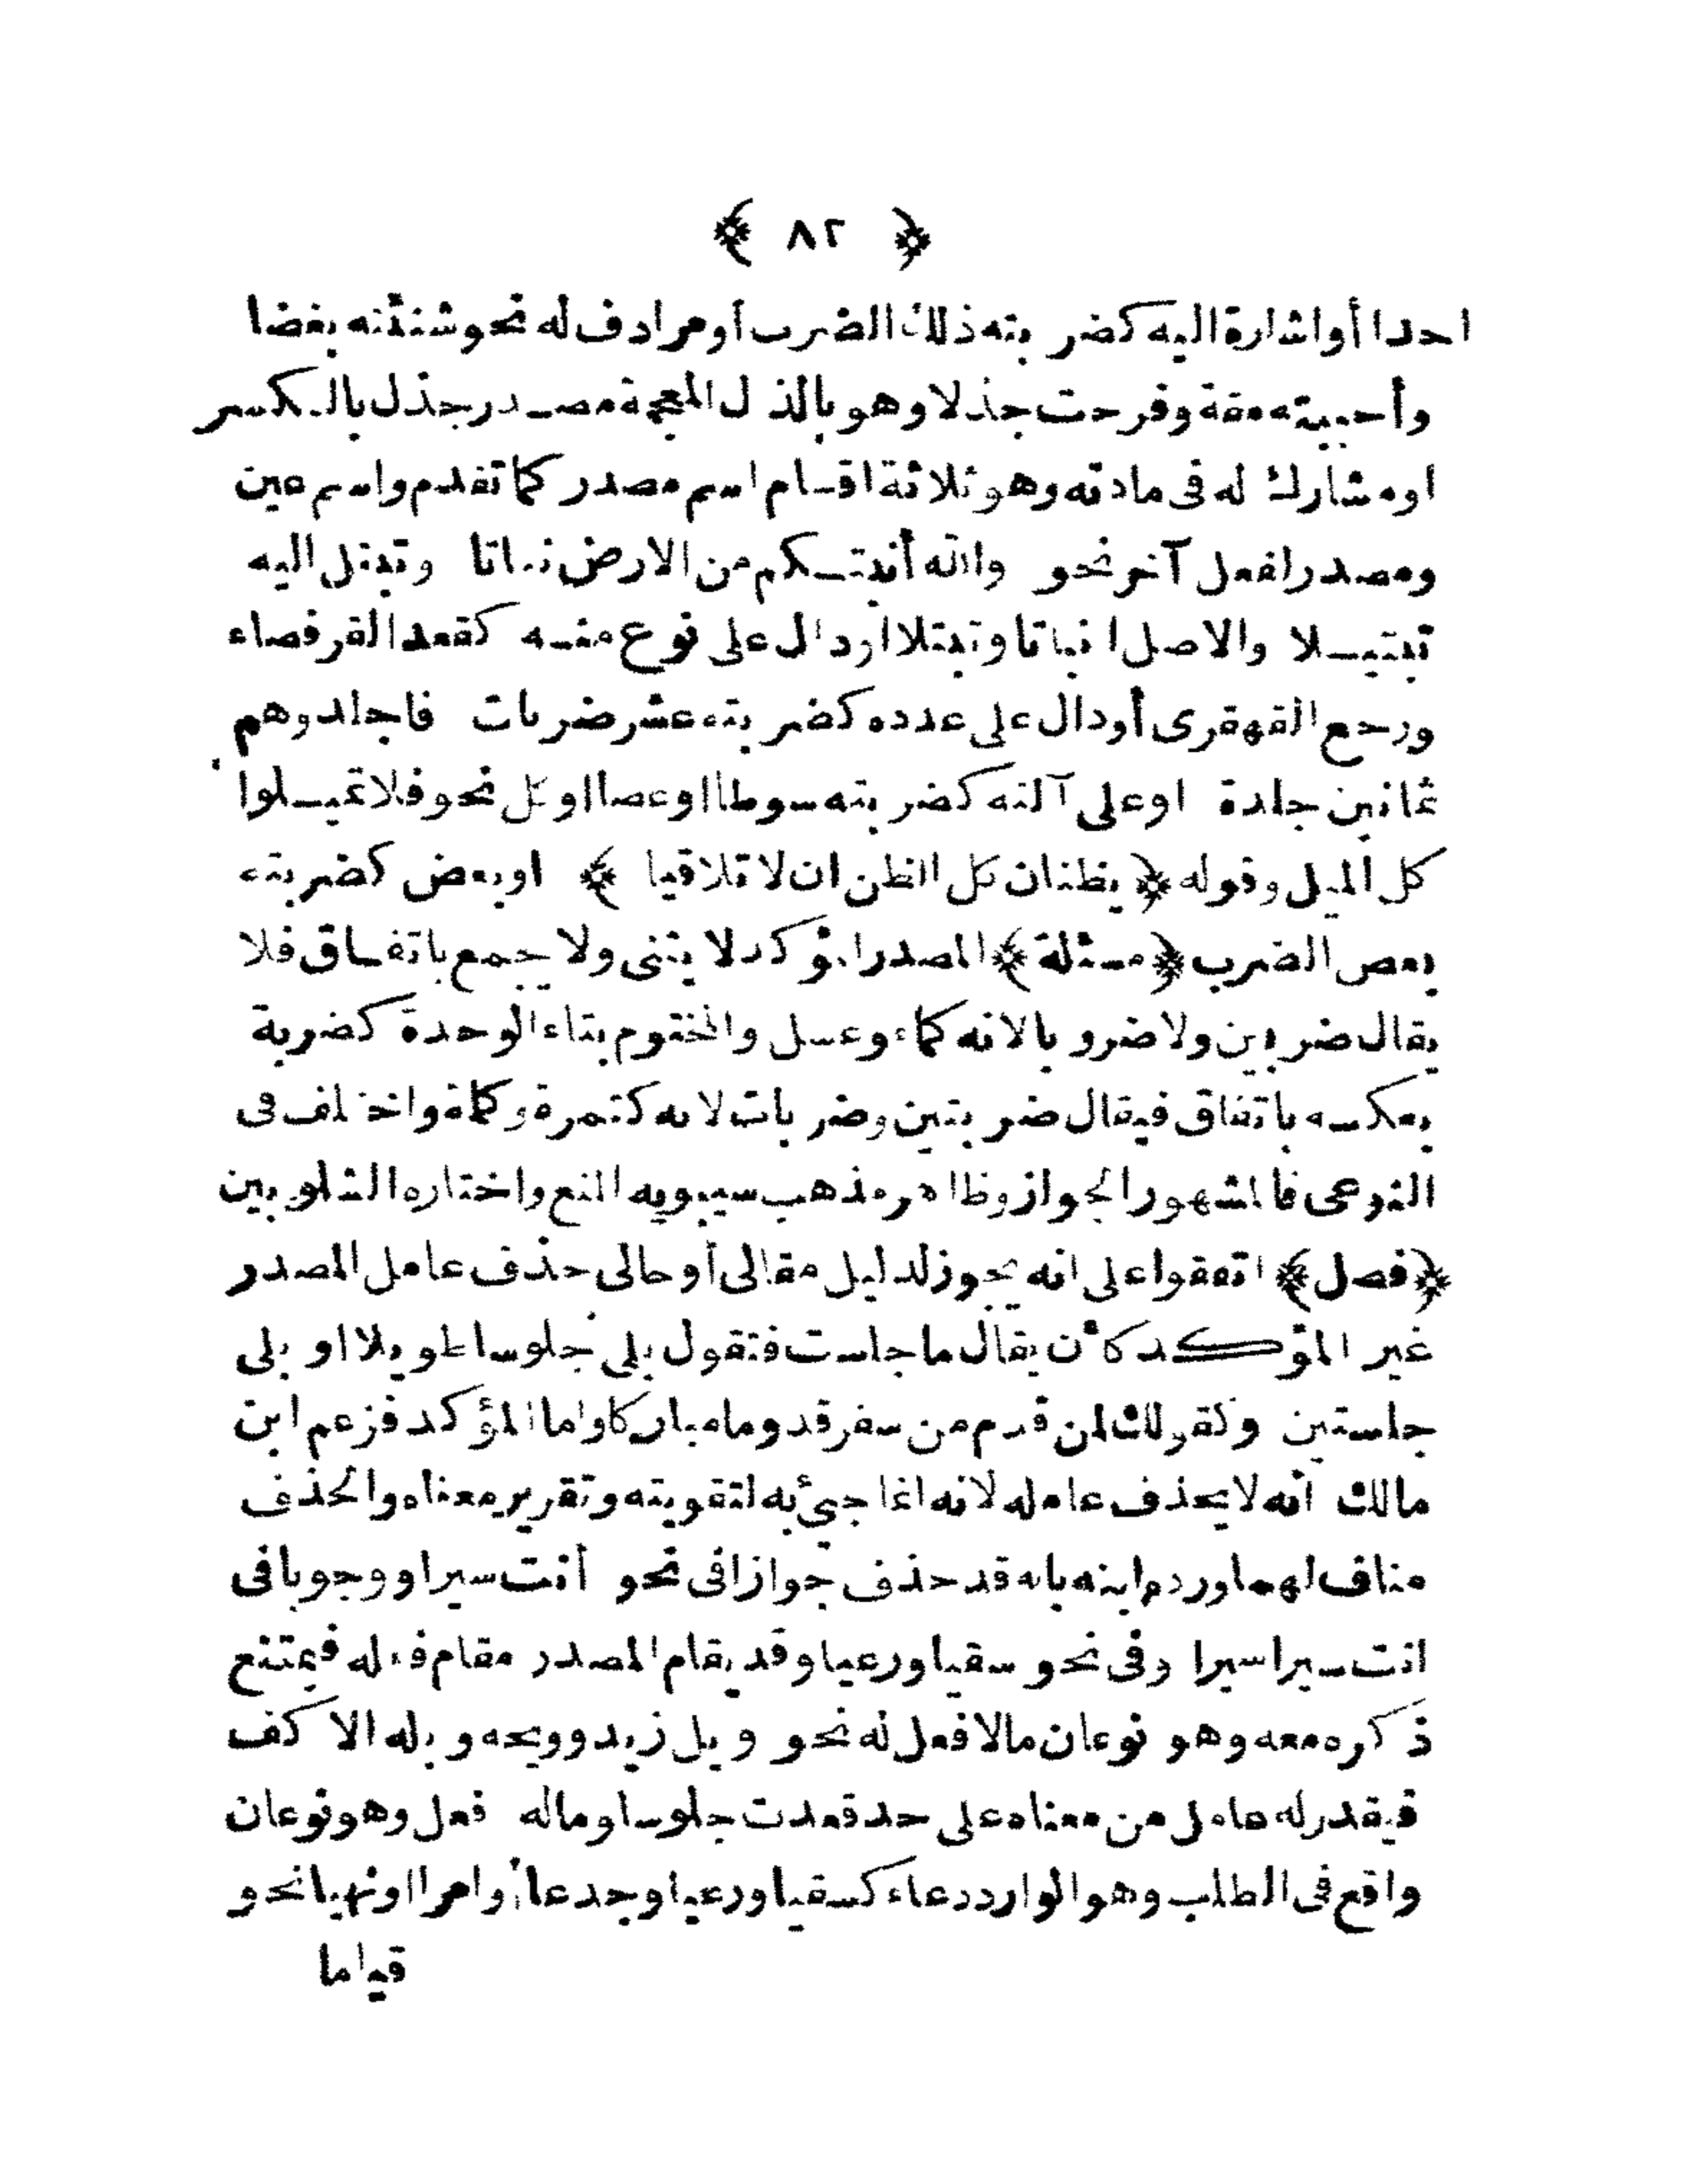 ﴿ ٨٢ ﴾
احدا أو اشارة اليه كضربته ذلك الضرب أو مرادف له نحو شنئته بغضا
وأحببته مقة وفرحت جذلا وهو بالذال المعجمة مصدر جذل بالكسر
او مشارك له فى مادته وهو ثلاثة اقسام اسم مصدر كما تقدم واسم عين
ومصدر لفعل آخر نحو والله أنبتكم من الارض نباتا وتبتل اليه
تبتيلا والاصل انباتا وتبتلا أو دال على نوع منه كقعد القرفصاء
ورجع القهقرى أو دال على عدده كضربته عشر ضربات فاجلدوهم
ثمانين جلدة او على آلته كضربته سوطا او عصا او كل نحو فلا تميلوا
كل الميل وقوله ﴿ يظنان كل الظن ان لا تلاقيا ﴾ او بعض كضربته
بعض الضرب ﴿مسئلة﴾ المصدر المؤكد لا يثنى ولا يجمع باتفاق فلا
يقال ضربين ولا ضروبا لانه كماء وعسل والمختوم بتاء الوحدة كضربة
بعكسه باتفاق فيقال ضربتين وضربات لانه كتمرة وكلمة واختلف فى
النوعى فالمشهور الجواز وظاهر مذهب سيبويه المنع واختاره الشلوبين
﴿فصل﴾ اتفقوا على انه يجوز لدليل مقالى أو حالى حذف عامل المصدر
غير المؤكد كأن يقال ما جلست فتقول بلى جلوسا طويلا او بلى
جلستين وكقولك لمن قدم من سفر قدوما مباركا واما المؤكد فزعم ابن
مالك أنه لا يحذف عامله لانه انما جىء به لتقويته وتقرير معناه والحذف
مناف لهما ورده ابنه بانه قد حذف جوازا فى نحو أنت سيرا ووجوبا فى
انت سيرا سيرا وفى نحو سقيا ورعيا وقد يقام المصدر مقام فعله فيمتنع
ذكره معه وهو نوعان ما لا فعل له نحو ويل زيد وويحه وبله الاكف
فيقدر له عامل من معناه على حد قعدت جلوسا وما له فعل وهو نوعان
واقع فى الطلب وهو الوارد دعاء كسقيا ورعيا وجدعا أو امرا او نهيا نحو
قياما